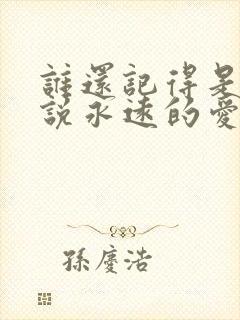 誰還記得是
說永遠的愛
孫慶浩